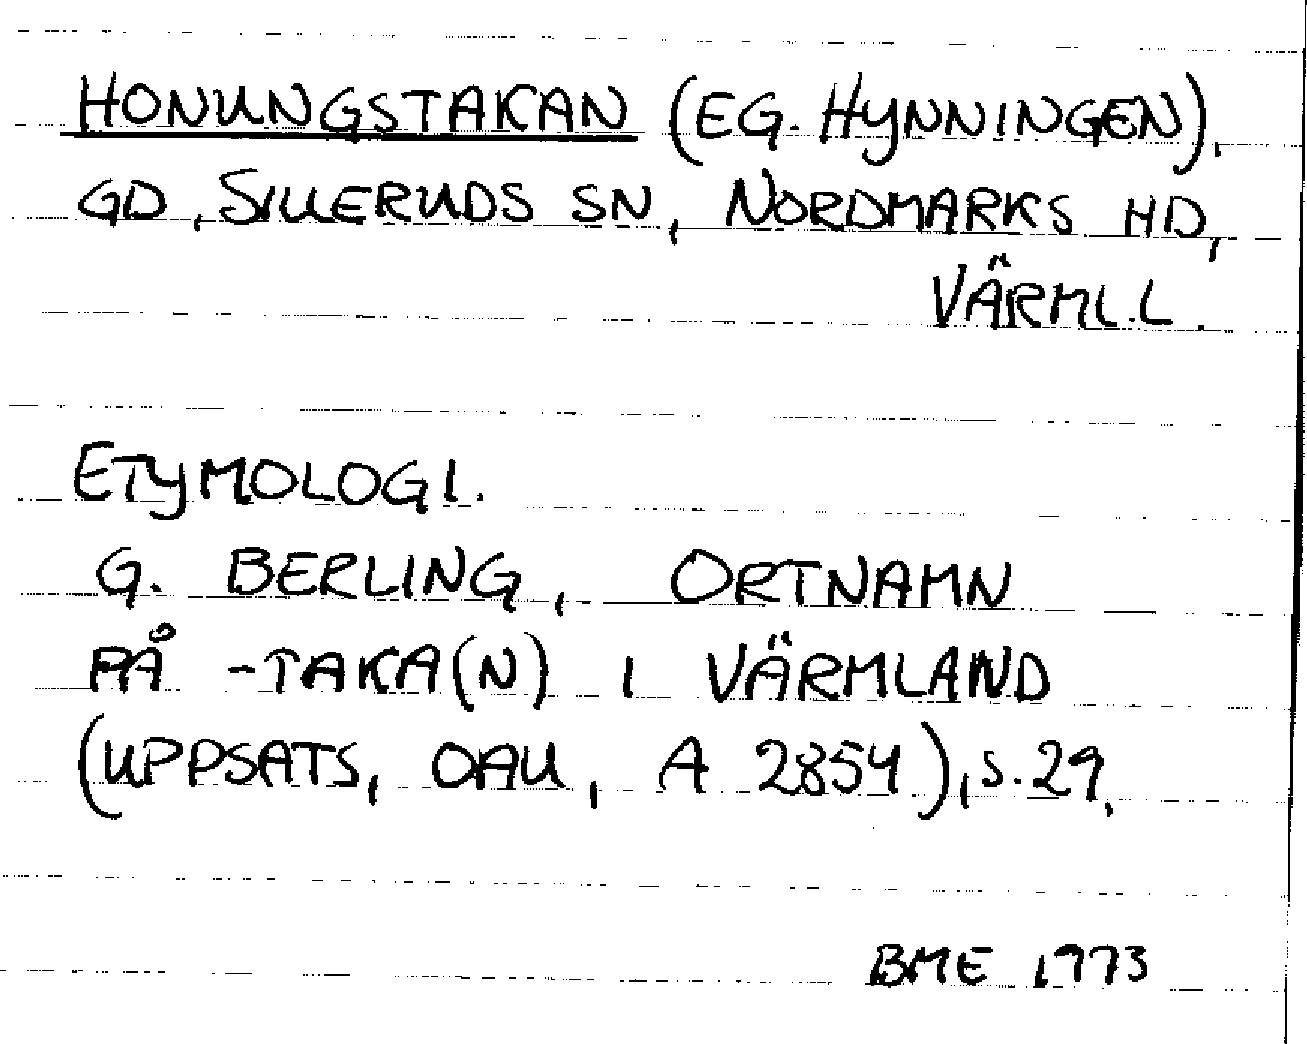 HONUNGSTAKAN (EG. HYNNINGEN),
GD, SILLERUDS SN, NORDMARKS HD,
VÄRML.L.
ETYMOLOGI.
G. BERLING, ORTNAMN
PÅ -TAKA(N) I VÄRMLAND
(UPPSATS, OAU, A 2854), S. 29.
BME 1973